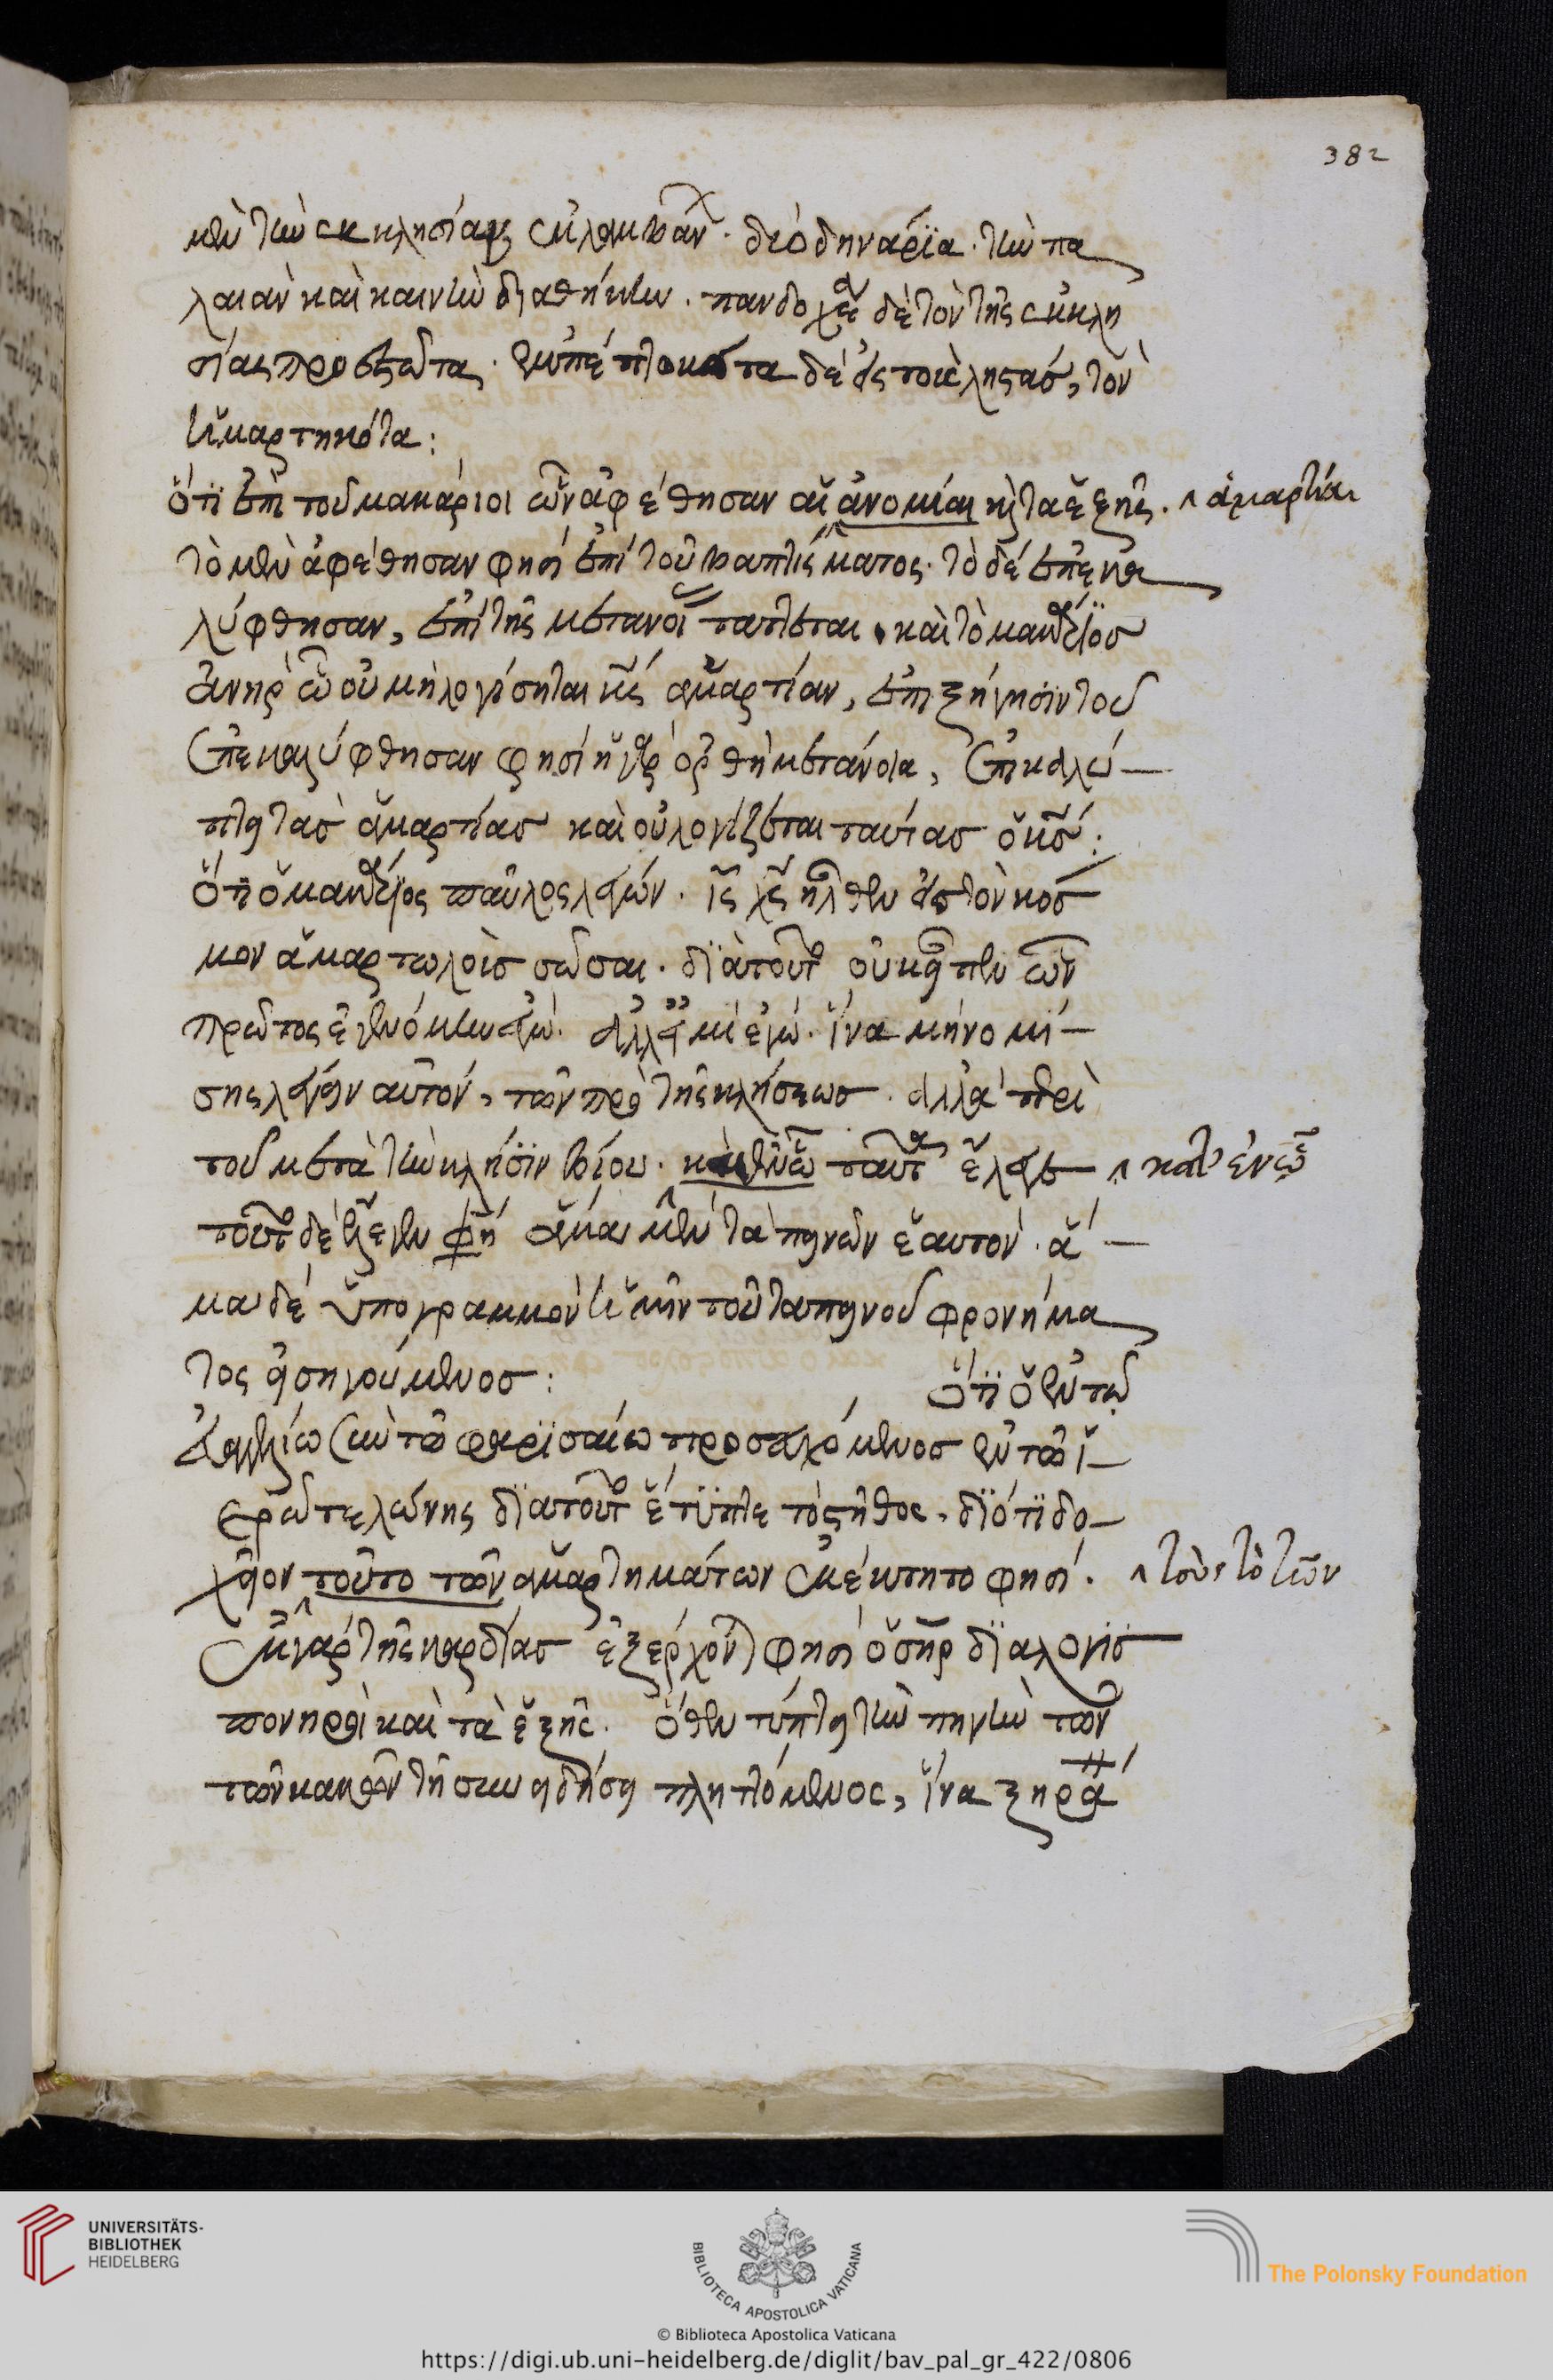 382
μὲν τὴν ἐκκλησίαν ἐκλαμβάν· δύο δηνάρϊα· τὴν πα
λαιὰν καὶ καινὴν διαθήκην· πανδοχέα δὲ τὸν τῆς ἐκκλη
σίας προεστῶτα· τὸν
ἡμαρτηκότα:
ὅτϊ ἐπὶ τοῦ μακάριοι ὧν ἀφέθησαν αἱ ἀνομίαι κ τὰ ἑξῆς. ^ ἁμαρτίαι
τὸ μὲν ἀφέθησαν φησὶ ἐπὶ τοῦ βαπτίσματος· τὸ δὲ ἐπεκα
λύφθησαν, ἐπὶ τῆς μετανοί τάττεται· καὶ τὸ μακάριος
ἀνὴρ ὧ οὐ μὴ λογίσηται κς ἁμαρτίαν, ἐπεξήγησϊν τοῦ
ἐπεκαλύφθησαν φησὶ ἡ γὰρ ὀρθὴ μετάνοια, ἐπικαλύ
πτει τὰς ἁμαρτίας καὶ οὐ λογίζεται ταύτας ὁ κς:
ὅτϊ ὁ μακάριος παῦλος λέγων· ις χς ἦλθεν εἰς τὸν κόσ
μον ἁμαρτωλοὺς σῶσαι· δϊὰ τοῦτο οὐκ εἶπεν ὧν
πρῶτος ἐγενόμην ἐγώ· ἀλλ' εἰμὶ ἐγώ· ἵνα μὴ νομί
σης λέγειν αὐτόν, τῶν πρὸ τῆς κλήσεως· ἀλλὰ περὶ
τοῦ μετὰ τὴν κλῆσϊν βίου· ταῦτα ἔλεγε ^ καθ' ἐν ὧ
τοῦτο δὲ ἔλεγεν φη ἅμα μὲν ταπεινῶν ἑαυτόν· ἅ
μα δὲ ὑπογραμμὸν ἡμῖν τοῦ ταπεινοῦ φρονήμα
τος εἰσηγούμενος: ὅτϊ ὁ ἐν τῶ
εὐαγγελίω σὺν τῶ φαρϊσαίω προσευχόμενος ἐν τῶ ἱ
ερῶ τελώνης δϊὰ τοῦτο ἔτυπτε τὸ στῆθος, δϊότϊ δο
χεῖον τοῦτο τῶν ἁμαρτημάτων ἐκέκτητο φησί. ^ τοῦτο τῶν
ἐκ γὰρ τῆς καρδίας ἐξέρχον φησὶ ὁ σηρ δϊαλογϊσ
πονηροὶ καὶ τὰ ἑξῆς. ὅθεν τύπτει τὴν πηγὴν τῶν
τῶν κακῶν τῆ συνειδήσει πληττόμενος, ἵνα ξηρά
UNIVERSITÄTS-
BIBLIOTHEK
HEIDELBERG
BIBLIOTECA APOSTOLICA VATICANA
The Polonsky Foundation
© Biblioteca Apostolica Vaticana
https://digi.ub.uni-heidelberg.de/diglit/bav_pal_gr_422/0806